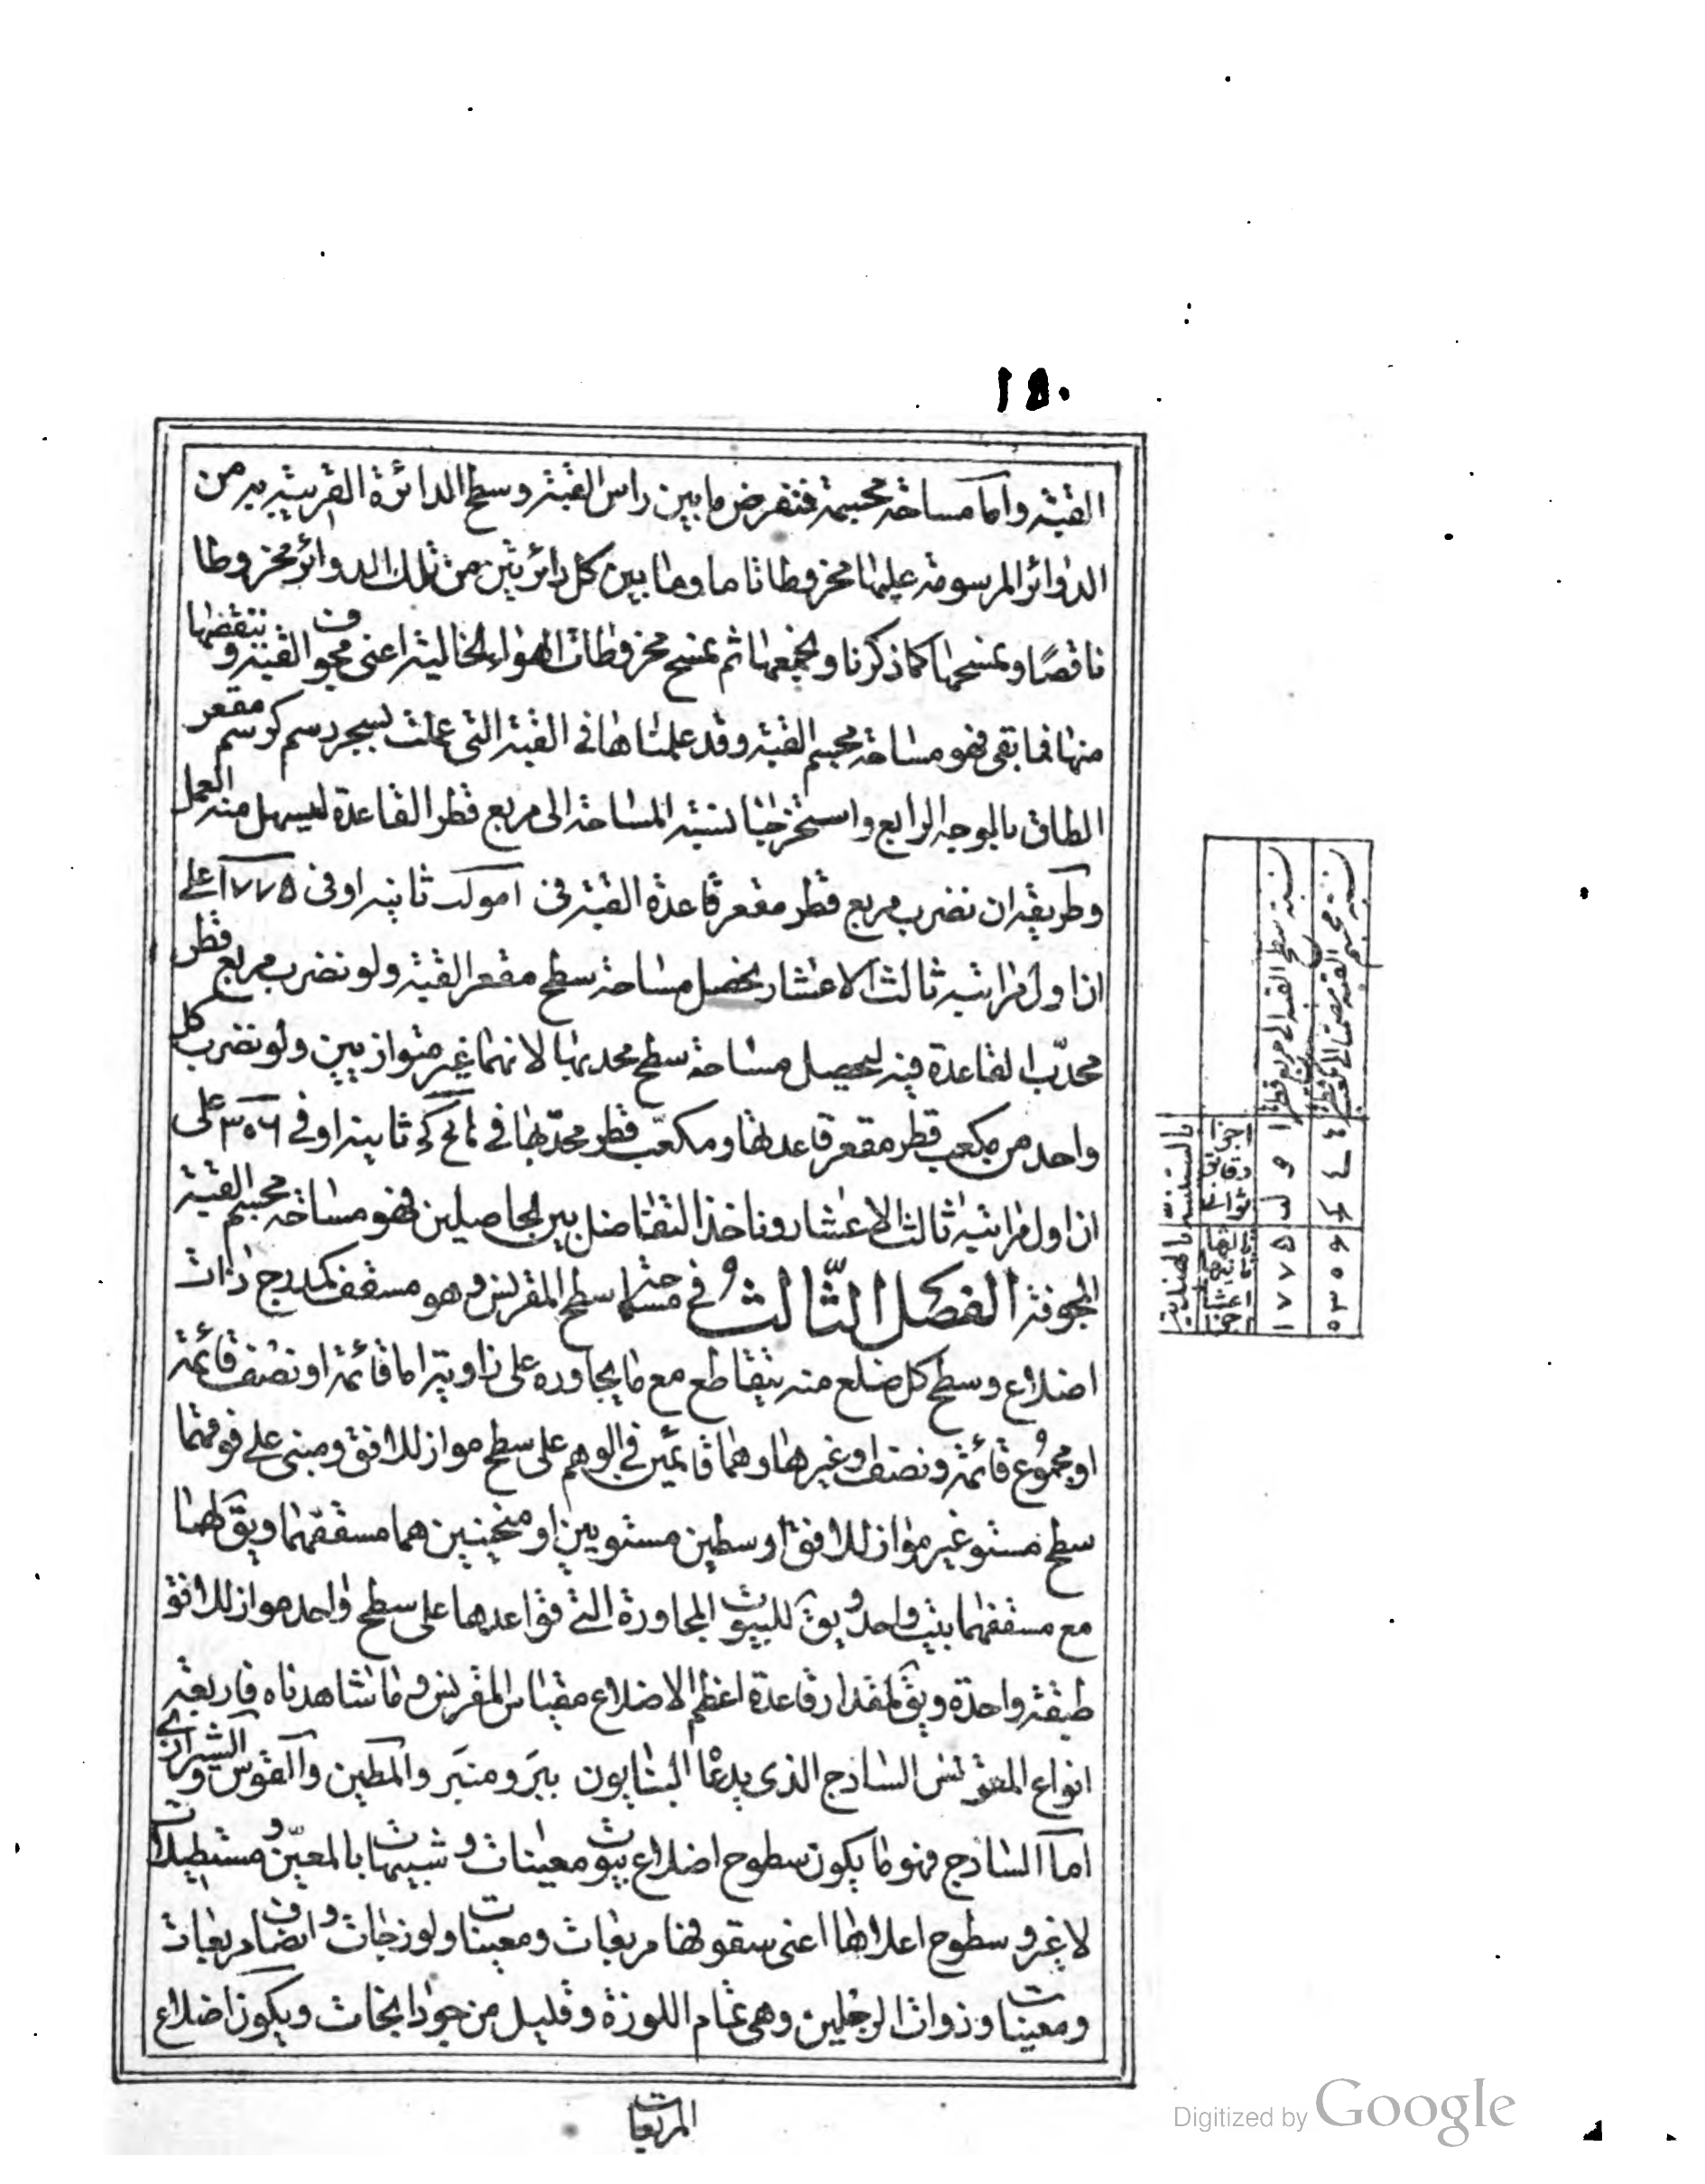 ١٥٠
القبة واما مساحة مجسمه فنفرض ما بين راس القبة وسطح الدائرة القريبة به من
الدوائر المرسومة عليها مخروطا تاما وما بين كل دائرتين من تلك الدوائر مخروطا
ناقصًا ونمسحها كما ذكرنا ونجمعها ثم نمسح مخروطات الهواء الخالية اعنى مجوف القبة وننقضها
منها فما بقى فهو مساحة مجسم القبة وقد عملناها فى القبة التى عملت رسم كرسم مقعر
الطاق بالوجه الرابع واستخرجنا نسبة المساحة الى مربع قطر القاعدة ليسهل منه العمل
وطريقه ان نضرب مربع قطر مقعر قاعدة القبة فى ا مو لب ثانية او فى ١٧٧٥ على
ان اول مراتبه ثالث الاعشار يحصل مساحة سطح مقعر القبة ولو نضرب مربع قطر
محدّب القاعدة فيه ليحصل مساحة سطح محدبها لانهما غير متوازيين ولو نضرب كل
واحد من مكعب قطر مقعر قاعدتها ومكعب قطر محدّبها فى ثانية او فى ٣٠٦ على
ان اول مراتبه ثالث الاعشار وناخذ التفاضل بين الحاصلين فهو مساحة مجسم القبة
المجوفة الفصل الثّالث فى مساحة سطح المقرنس وهو مسقف كمدرج ذات
اضلاع وسطح كل ضلع منه يتقاطع مع ما يجاوره على زاوية اما قائمة او نصف قائمة
او مجموع قائمة ونصف او غيرها وهما قائمين فى الوهم على سطح مواز للافق ومبنى على فوقهما
سطح مستو غير مواز للافق او سطحين مستويين او منحنيين هما مسقفهما ويق لهما
مع مسقفهما بيت واحد ويق للبيوت المجاورة التى قواعدها على سطح واحد مواز للافق
طبقة واحدة ويق لمقدار قاعدة اعظم الاضلاع مقياس المقرنس وما شاهدناه فاربعة
انواع المقرنس الساذج الذى يدعا البنايون بـ منبر والمطين والقوس والشيرازى
اما الساذج فهو ما يكون سطوح اضلاع بيوت معينات وشبيهات بالمعيّن ومستطيلات
لا غير وسطوح اعلاها اعنى سقوفها مربعات ومعينات ولوزجات وانصاف مربعات
ومعينات وذوات الرجلين وهى تمام اللوزة وقليل من ويكون اضلاع
المربعات
نسبة سطح القبة الى مربع قطر
نسبة مجسم القبة الى مكعب
بالستينية
بالهندية
١٧٧٥
Digitized by Google